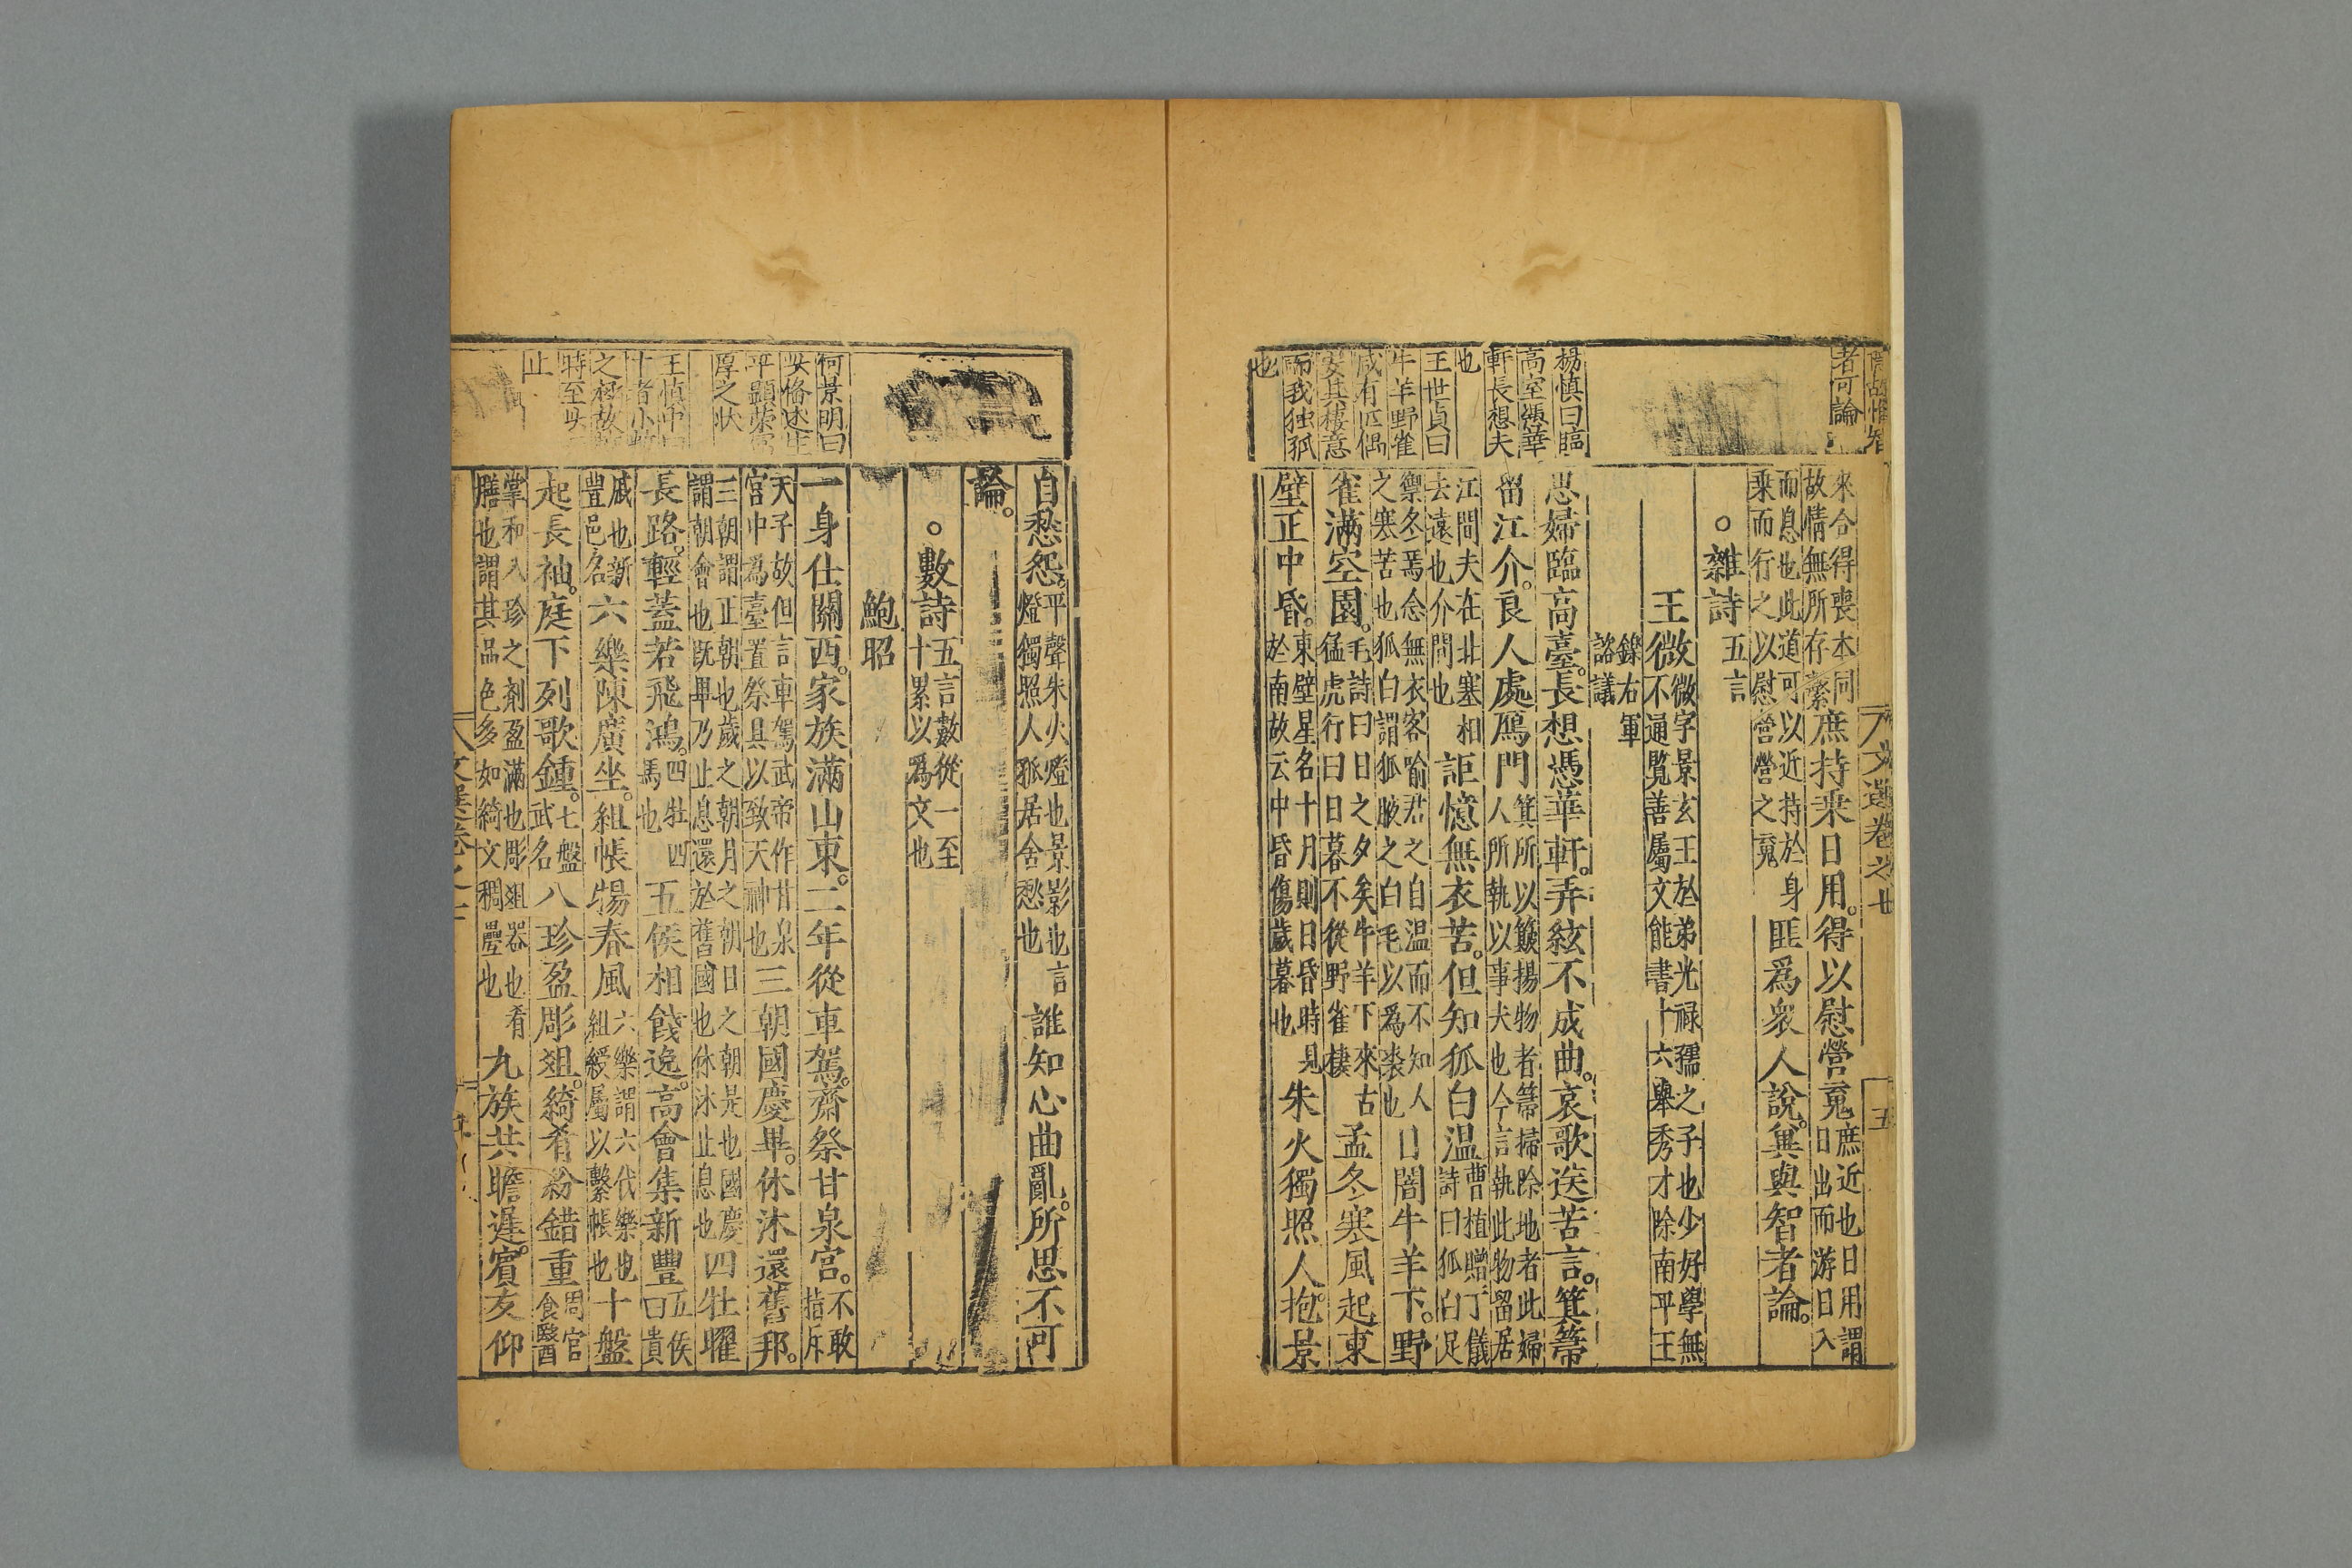 者可論
楊慎曰臨
高室憑華
軒長想夫
也
王世貞曰
牛羊野雀
咸有匹偶
安其棲意
而我独孤
也
文選卷之廿
五
來合得喪本同
故情無所存繫庶持乘日用。得以慰營䰟庶近也日用謂
日出而游日入
而息也此道可以近持於身
乘而行之以慰營營之䰟匪爲衆人說。兾與智者論。
○雜詩五言
王微微字景玄王於弟光禄孺之子也少好學無
不通覧善屬文能書十六舉秀才除南平王
鑠右軍
諮議
思婦臨高臺。長想憑華軒。弄絃不成曲。哀歌送苦言。箕箒
留江介。良人處鴈門箕所以簸揚物者箒掃除地者此婦
人所執以事夫也今言執此物留居
江間夫在北塞相
去遠也介間也詎憶無衣苦。但知狐白温曹植贈丁儀
詩曰狐白足
禦冬焉念無衣客喻君之自温而不知人
之寒苦也狐白謂狐腋之白毛以爲裘也日闇牛羊下。野
雀滿空園。毛詩曰日之夕矣牛羊下來古
猛虎行曰日暮不從野雀棲孟冬寒風起東
壁正中昏。東壁星名十月則日昏時見
於南故云中昏傷歲暮也朱火獨照人抱景
自愁怨。平聲朱火燈也景影也言
燈獨照人孤居舍愁也誰知心曲亂。所思不可
論。
○數詩五言數從一至
十累以爲文也
鮑昭
何景明曰
厚之狀
時至此
止
一身仕關西。家族滿山東。二年從車駕。齋祭甘泉宫。不敢
指斥
天子故但言車駕武帝作甘泉
宫中爲臺置祭具以致天神也三朝國慶畢。休沐還舊邦。
三朝謂正朝也歲之朝月之朝日之朝是也國慶
謂朝會也既畢乃止息還於舊國也休沐止息也四牡曜
長路。輕蓋若飛鴻。四牡四
馬也五侯相餞送。高會集新豐五侯
曰貴
戚也新
豐邑名六樂陳廣坐。組帳揚春風六樂謂六代樂也
組綬屬以繫帳也十盤
起長袖。庭下列歌鍾。七盤
武名八珍盈彫俎。綺肴紛錯重周官
食醫
掌和入珍之劑盈滿也彫俎器也肴
膳也謂其品色多如綺文稠曡也九族共瞻遲。賓友仰